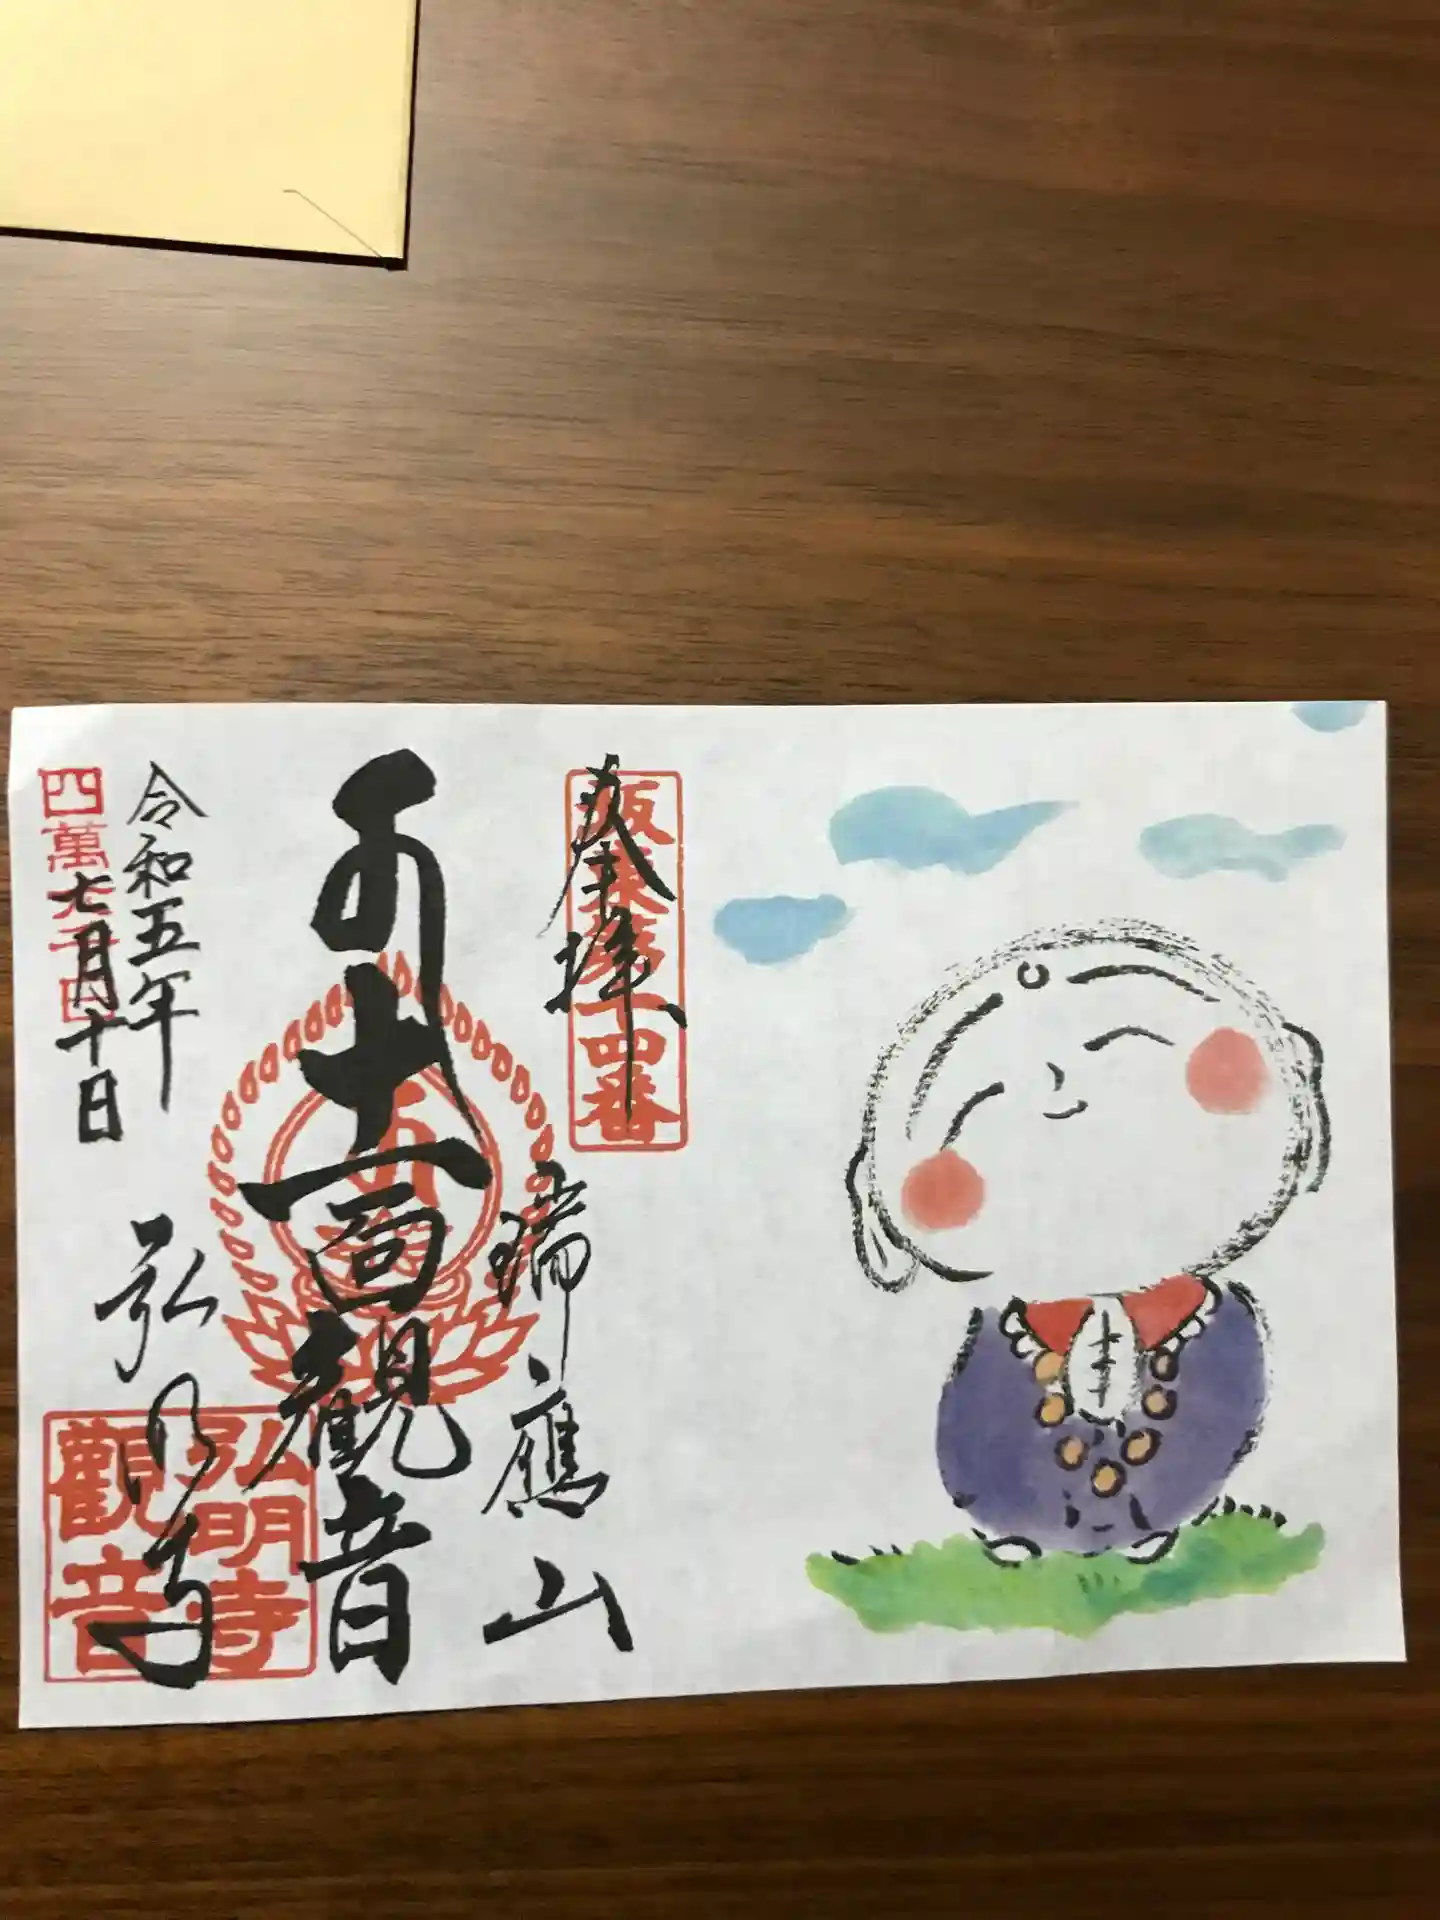 奉拝
坂東第十四番
瑞應山
十一面観音
弘明寺
弘明寺
觀音
令和五年
七月十日
四萬七千日